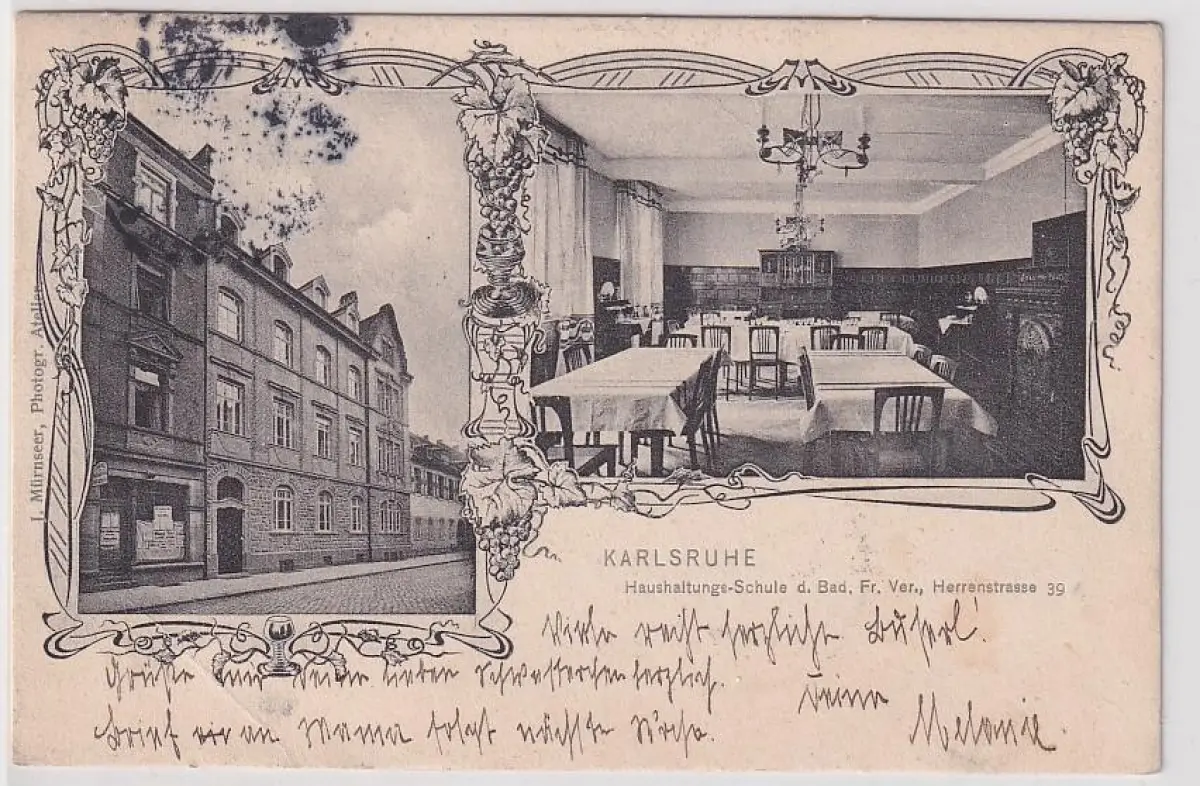 J. Mürnseer, Photogr. Atelier
KARLSRUHE
Haushaltungs-Schule d. Bad. Fr. Ver., Herrenstrasse 39
Viele recht herzliche Buserl!
Grüße nur Deine lieben Schwesterchen herzlich.
Deine
Brief an Mama folgt nächste Woche.
Melanie.